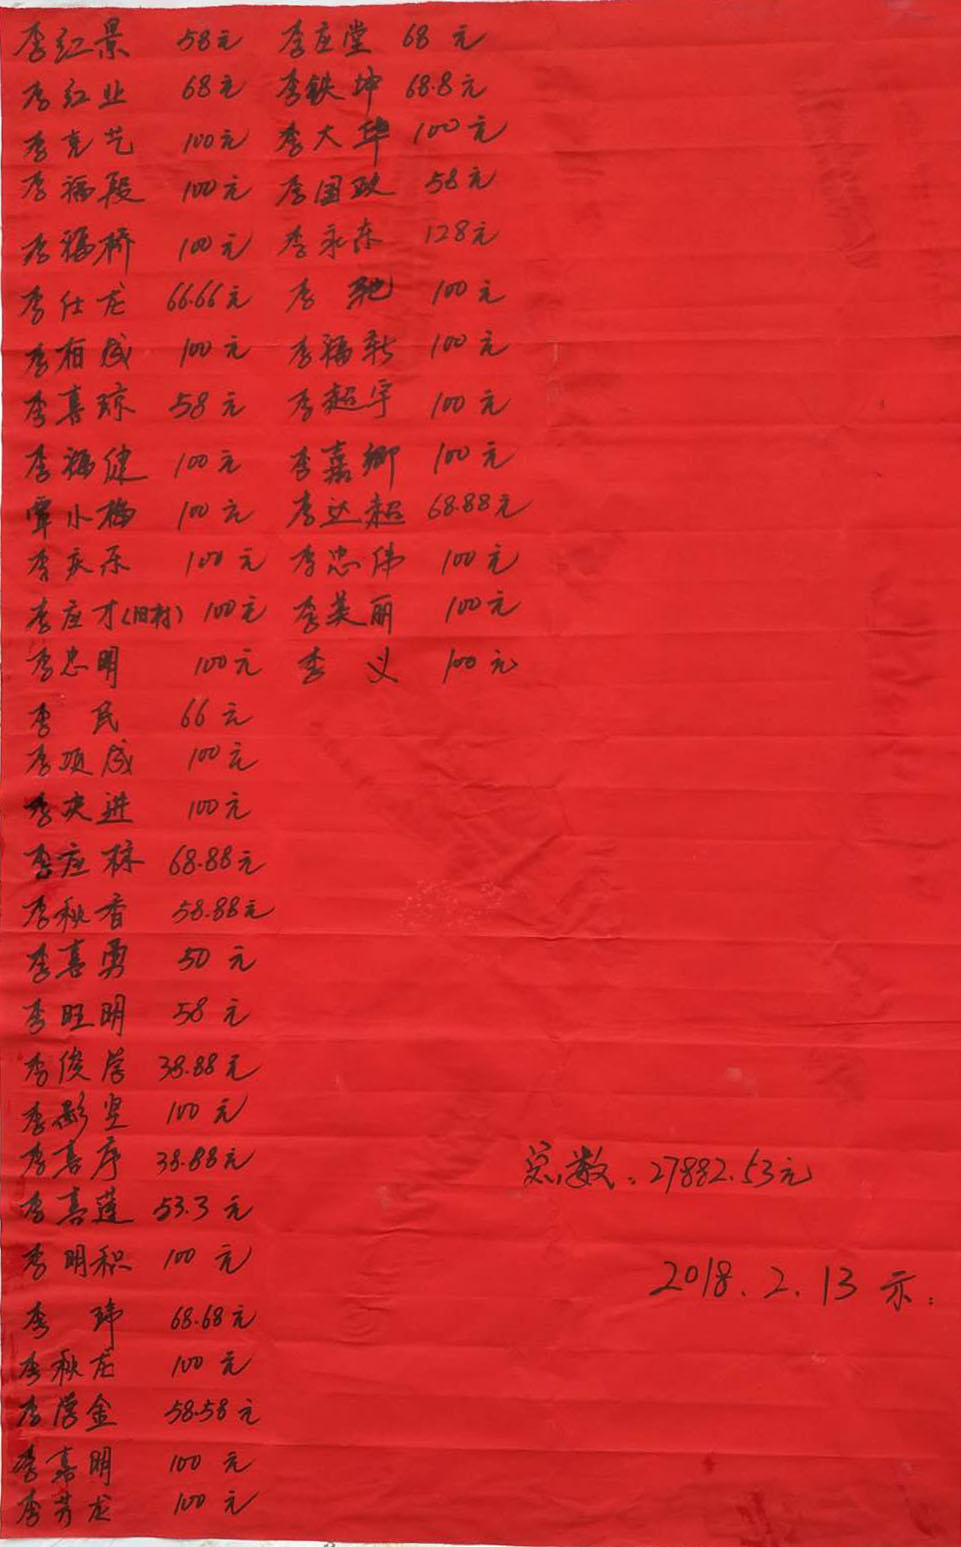 李红景 58元
李红业 68元
李克艺 100元
李福段 100元
李福桥 100元
李仕龙 66.66元
李有成 100元
李喜琼 58元
李福健 100元
覃小梅 100元
李庆乐 100元
李应才(旧村) 100元
李忠明 100元
李民 66元
李项成 100元
李庆进 100元
李应栋 68.88元
李秋香 58.88元
李喜勇 50元
李旺明 58元
李俊学 38.88元
李彪坚 100元
李喜序 38.88元
李喜莲 53.3元
李明积 100元
李玮 68.68元
李秋龙 100元
李学金 58.58元
李嘉明 100元
李芳龙 100元
李应堂 68元
李铁坤 68.8元
李大华 100元
李国政 58元
李永东 128元
李艳 100元
李福新 100元
李超宇 100元
李嘉卿 100元
李达超 68.88元
李忠伟 100元
李美丽 100元
李义 100元
总数:27882.53元
2018.2.13示: